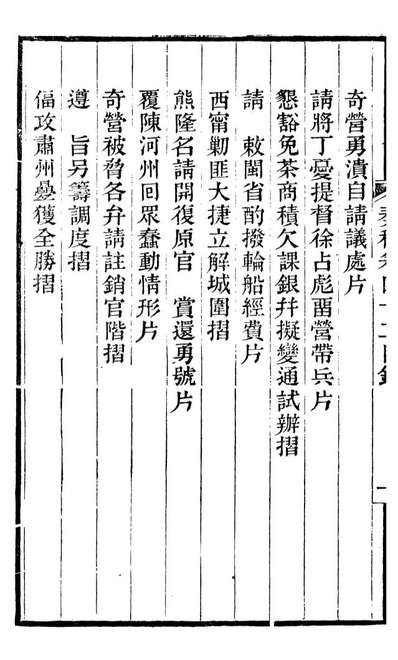 奏稿卷四十二目錄
一
奇營勇潰自請議處片
請將丁憂提督徐占彪畱營帶兵片
懇豁免茶商積欠課銀幷擬變通試辦摺
請　敕閩省酌撥輪船經費片
西甯勦匪大捷立解城圍摺
熊隆名請開復原官　賞還勇號片
覆陳河州回眾蠢動情形片
奇營被脅各弁請註銷官階摺
遵　旨另籌調度摺
偪攻肅州壘獲全勝摺